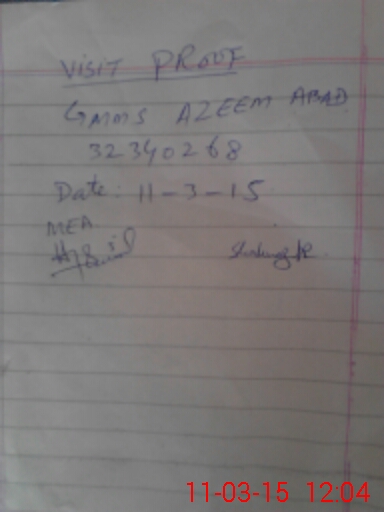 VISIT PROOF
GMMS AZEEM ABAD
32340268
Date: 11-3-15
MEA
11-03-15 12:04